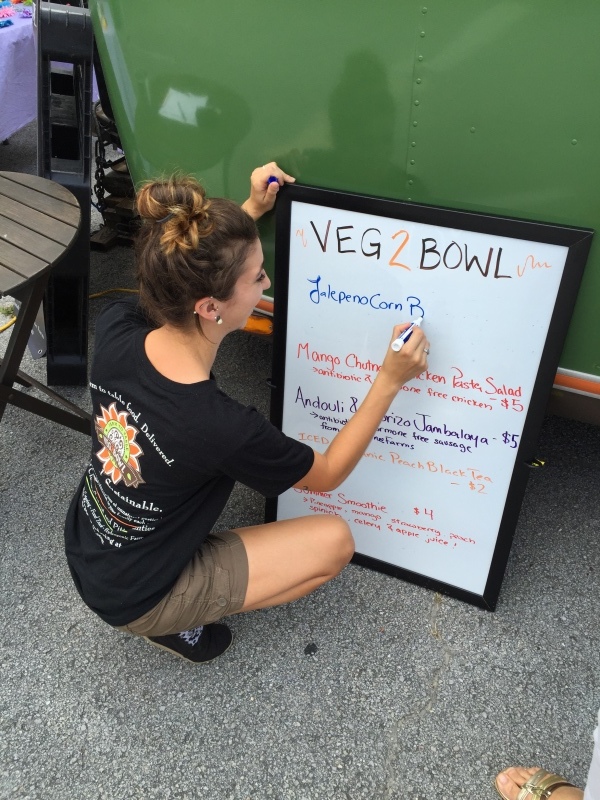 VEG 2 BOWL
Jalepeno Corn B
Mango Chutne cken Pasta Salad
→antibiotic & mone free chicken - $5
Andouli & orizo Jambalaya - $5
→antibio rmone free sausage
from Farms
ICED nic Peach Black Tea
- $2
Summer Smoothie $4
→Pineapple, mango, strawberry, peach
spinach, celery & apple juice!
to table food. Delivered.
Sustainable.